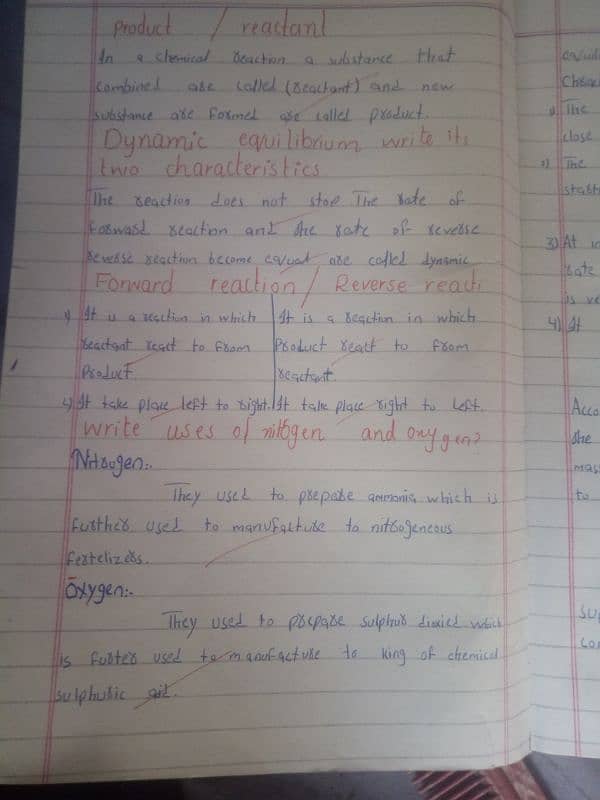 Product / reactant
In a chemical reaction a substance that
combined are called (reactant) and new
substance are formed are called product.
Dynamic equilibrium write its
two characteristics
The reaction does not stop The rate of
forward reaction and the rate of reverse
reverse reaction become equal are called dynamic
Forward reaction / Reverse reacti
1) It is a reaction in which | It is a reaction in which
reactant react to from | Product react to from
Product | reactant.
2) It take place left to right. | It take place right to left.
write uses of nitogen and oxygen?
Nitrogen:.
They used to prepare ammonia which is
further used to manufacture to nitrogeneous
fertelizers.
Oxygen:.
They used to prepare sulphur dioxied which
is furter used to manufacture to king of chemical
sulphuric
The
close
The
3) At
rate
is ve
4) It
Acco
the
mass
to